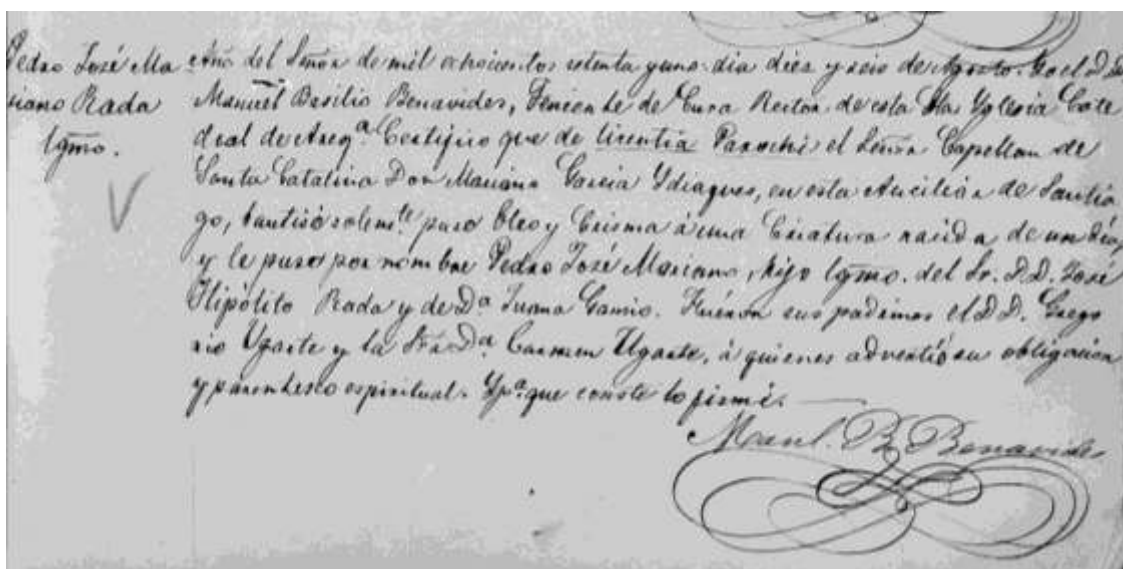 Pedro José Ma
riano Rada
lgmo.
Año del Señor de mil ochocientos setenta y uno. dia diez y seis de Agosto. Yo el D. D.
Manuel Basilio Benavides, Teniente de Cura Rector de esta Sta Yglesia Cate
dral de Areqa. Certifico que de licentia Parochi el Señor Capellan de
Santa Catalina Don Mariano Garcia Ydiaques, en esta Auxiliar de Santia
go, bautisó solemte. puso Oleo y Crisma á una Criatura nacida de un dia,
y le puso por nombre Pedro José Mariano, hijo lgmo. del Sr. D. D. José
Hipólito Rada y de Da Juana Gamio. Fuéron sus padrinos el D. D. Grego
rio Ugarte y la Sra. Da. Carmen Ugarte, á quienes advertió su obligacion
y parentesco espiritual. Y pa. que conste lo firmé.
Manl. B. Benavides